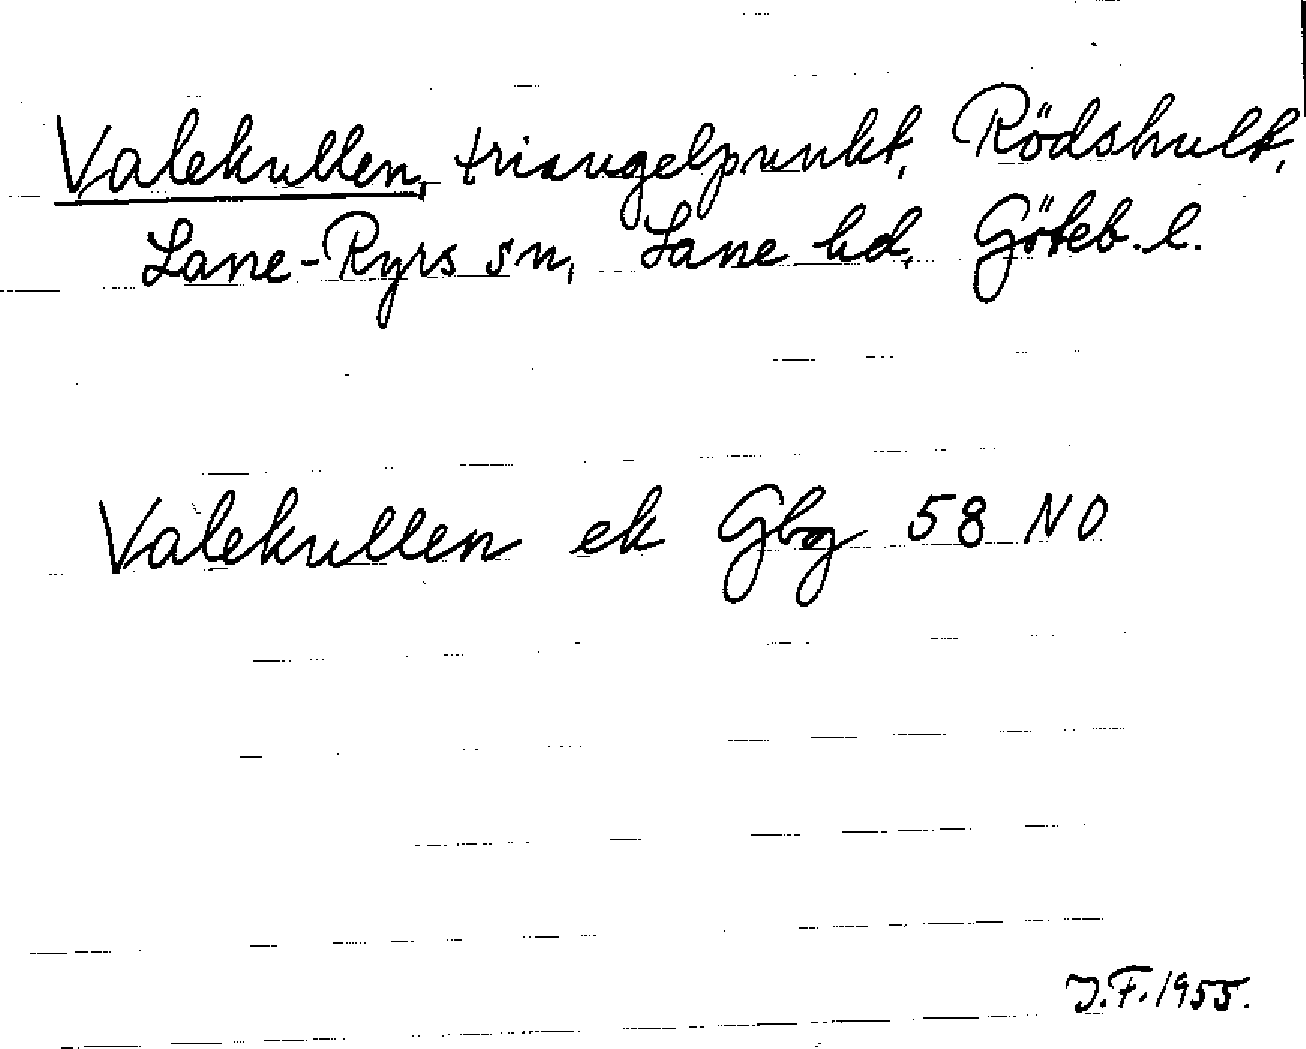 Valekullen, triangelpunkt, Rödshult,
Lane-Ryrs sn, Lane hd, Göteb. l.
Valekullen ek Gbg 58 NO
J.F. 1955.